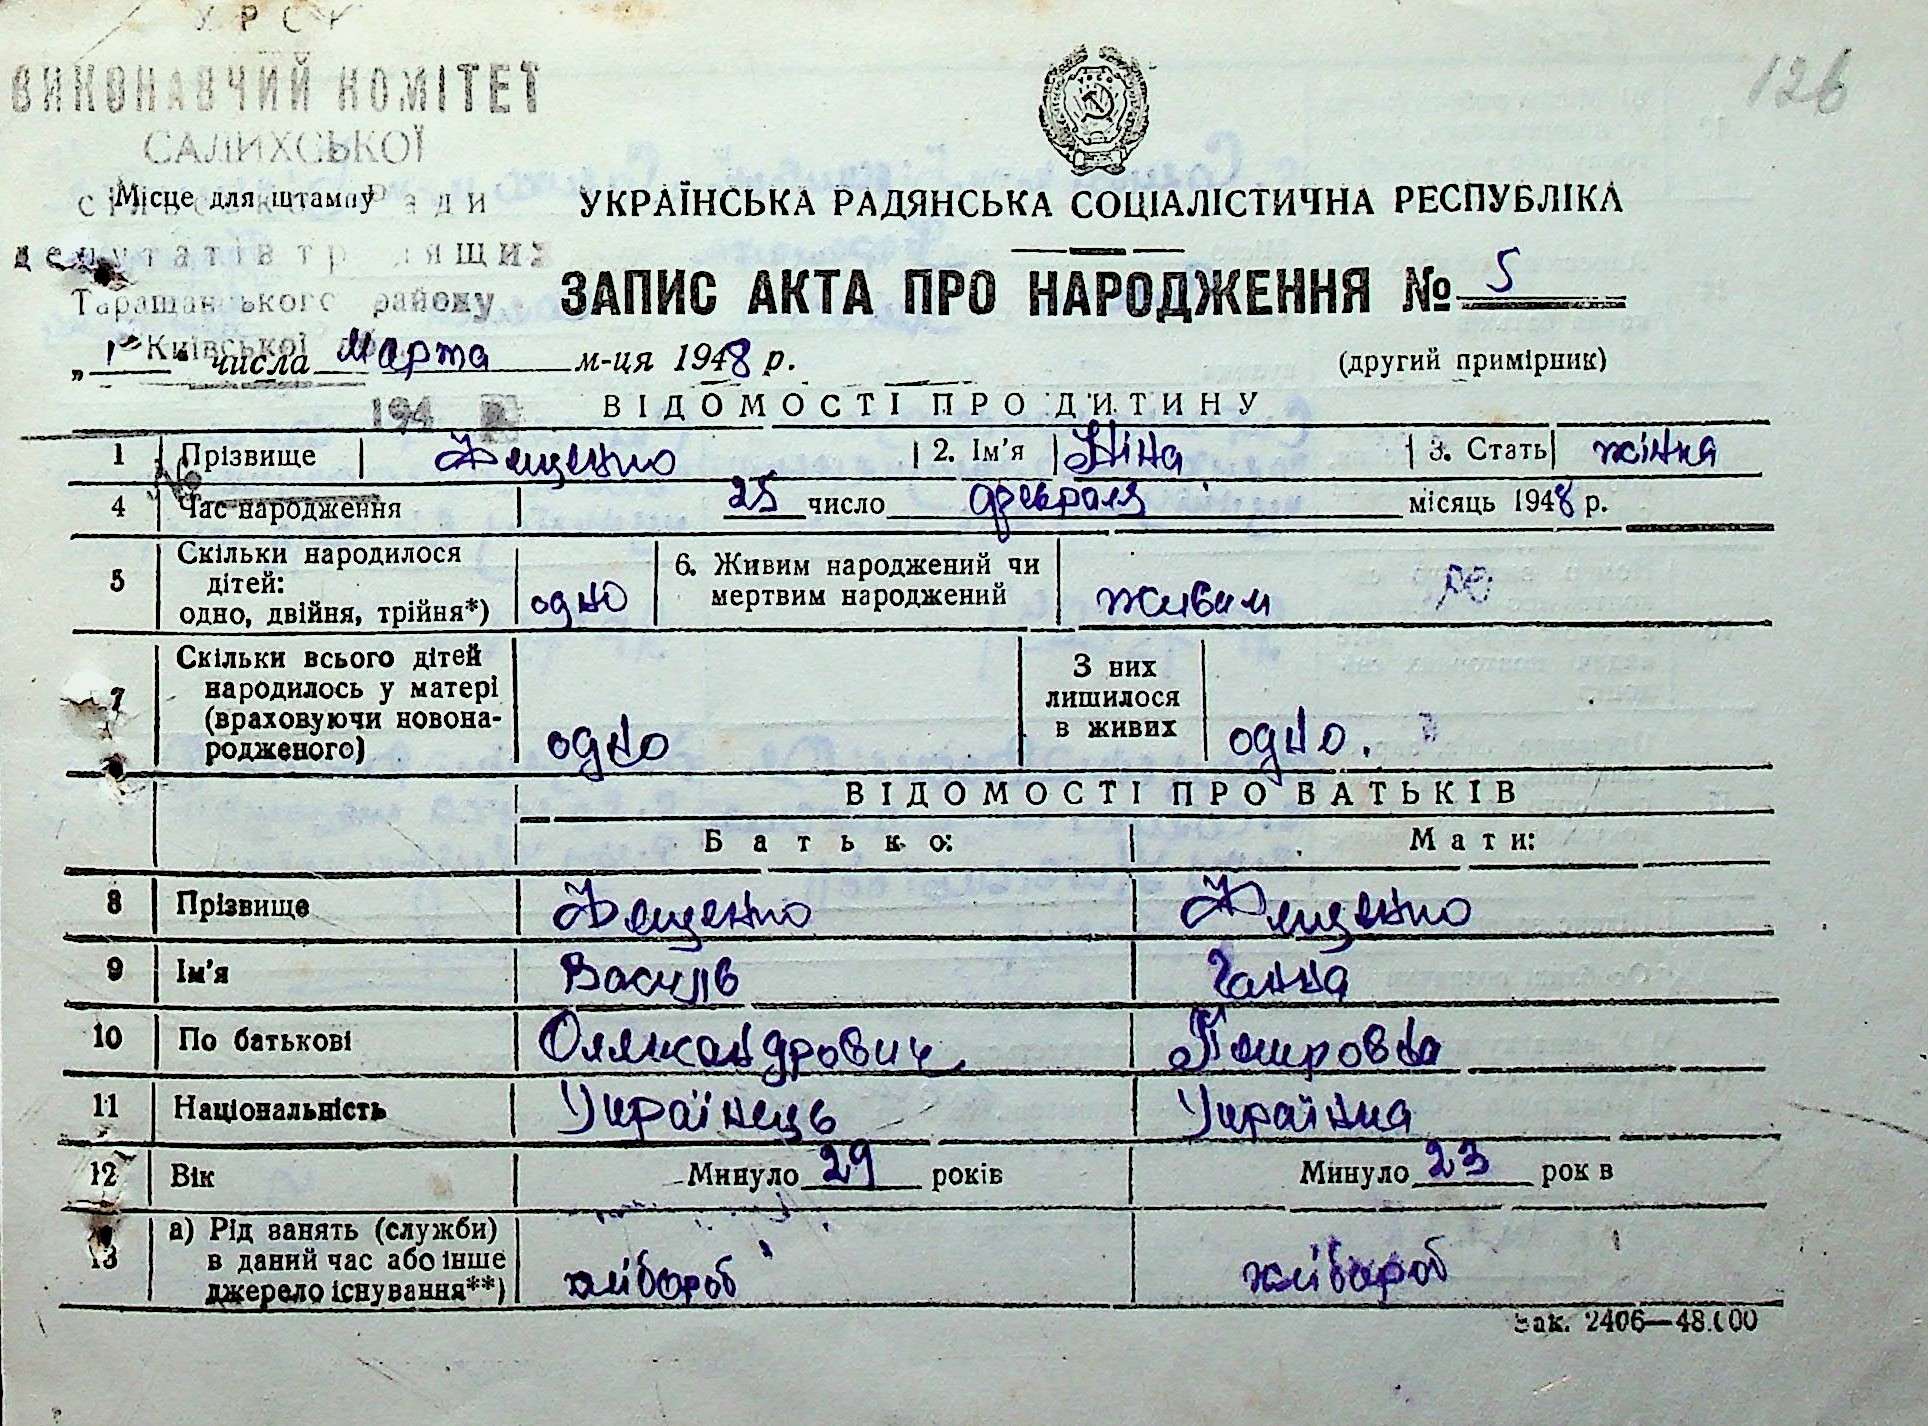 УРСР
ВИКОНАВЧИЙ КОМІТЕТ
САЛИХСЬКОЇ
Місце для штампу
депутатів трудящих
Таращанського району
Київської
194 р.
126
УКРАЇНСЬКА РАДЯНСЬКА СОЦІАЛІСТИЧНА РЕСПУБЛІКА
ЗАПИС АКТА ПРО НАРОДЖЕННЯ № 5
„1“ числа Марта м-ця 1948 р.
(другий примірник)
ВІДОМОСТІ ПРО ДИТИНУ
1 Прізвище Ященко 2. Ім'я Ніна 3. Стать жінка
4 Час народження 25 число февраля місяць 1948 р.
5 Скільки народилося дітей: одно, двійня, трійня*) одно 6. Живим народжений чи мертвим народжений живим
7 Скільки всього дітей народилось у матері (враховуючи новонародженого) одно З них лишилося в живих одно.
ВІДОМОСТІ ПРО БАТЬКІВ
Батько: Мати:
8 Прізвище Ященко Ященко
9 Ім'я Василь Ганна
10 По батькові Олександрович Петровна
11 Національність Українець Українка
12 Вік Минуло 29 років Минуло 23 рок в
13 а) Рід занять (служби) в даний час або інше джерело існування**) хлібороб хлібороб
Зак. 2406—48.000